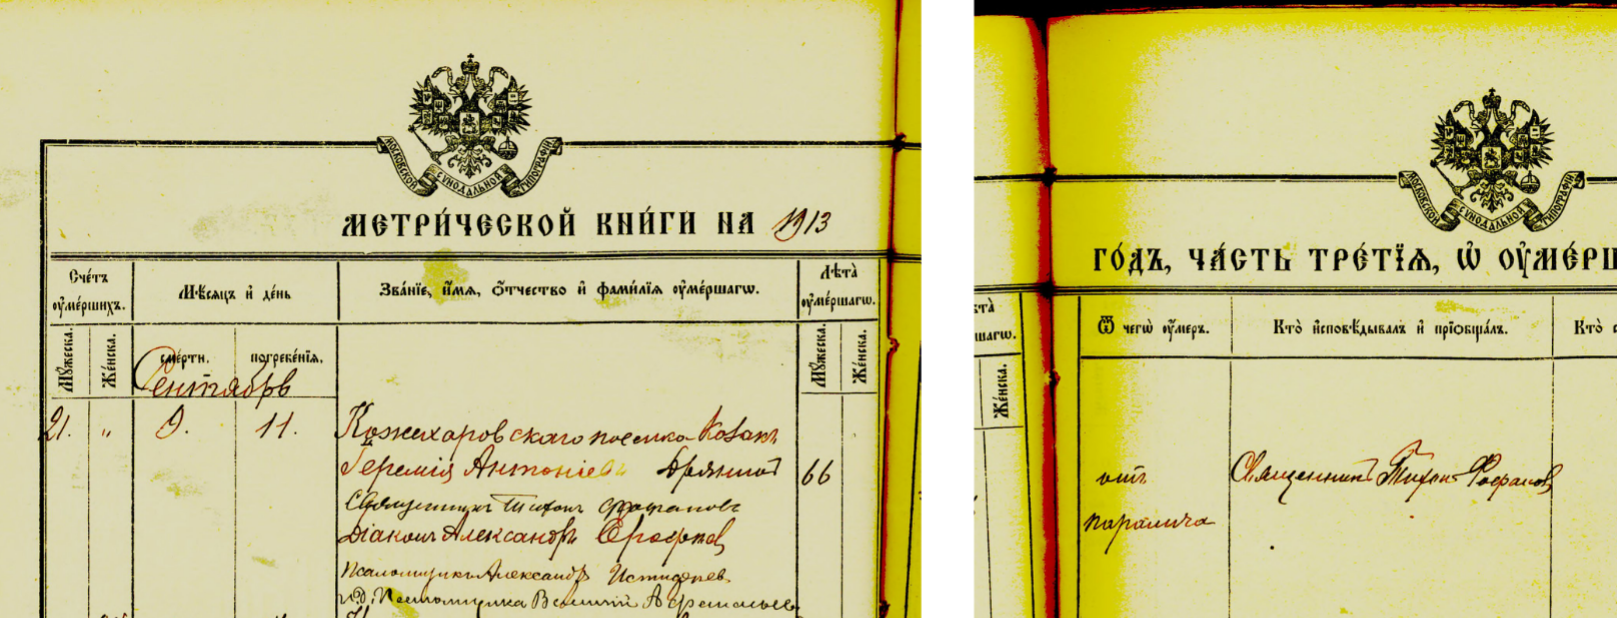 МОСКОВСКОЙ СѴНОДАЛЬНОЙ ТИПОГРАФІИ
МЕТРИ́ЧЕСКОЙ КНИ́ГИ НА 1913
Сче́тъ ᲂу҆ме́ршихъ.
Мѣ́сяцъ и҆ де́нь
Зва́нїе, и҆́мя, ѻ҆́тчество и҆ фами́лїя ᲂу҆ме́ршагѡ.
Лѣ̑та̀ ᲂу҆ме́ршагѡ.
Мꙋ́жеска.
Же́нска.
сме́рти.
погребе́нїя.
Мꙋ́жеска.
Же́нска.
Сентябрь
21. " 9. 11. Кожехаровскаго поселка козакъ
Іеремія Антоніевъ 66
Священникъ Тихонъ
Діаконъ Александръ
Псаломщикъ Александръ
и.д. Псаломщика
МОСКОВСКОЙ СѴНОДАЛЬНОЙ ТИПОГРАФІИ
ГО́ДЪ, ЧА́СТЬ ТРЕ́ТЇЯ, Ѡ҆ ОУ҆МЕ́РШ
та̀
шагѡ.
Же́нска.
Ѿ чегѡ̀ ᲂу҆́меръ.
Кто̀ и҆сповѣ́дывалъ и҆ прїѡбща́лъ.
Кто̀
отъ
паралича
Священникъ Тихонъ